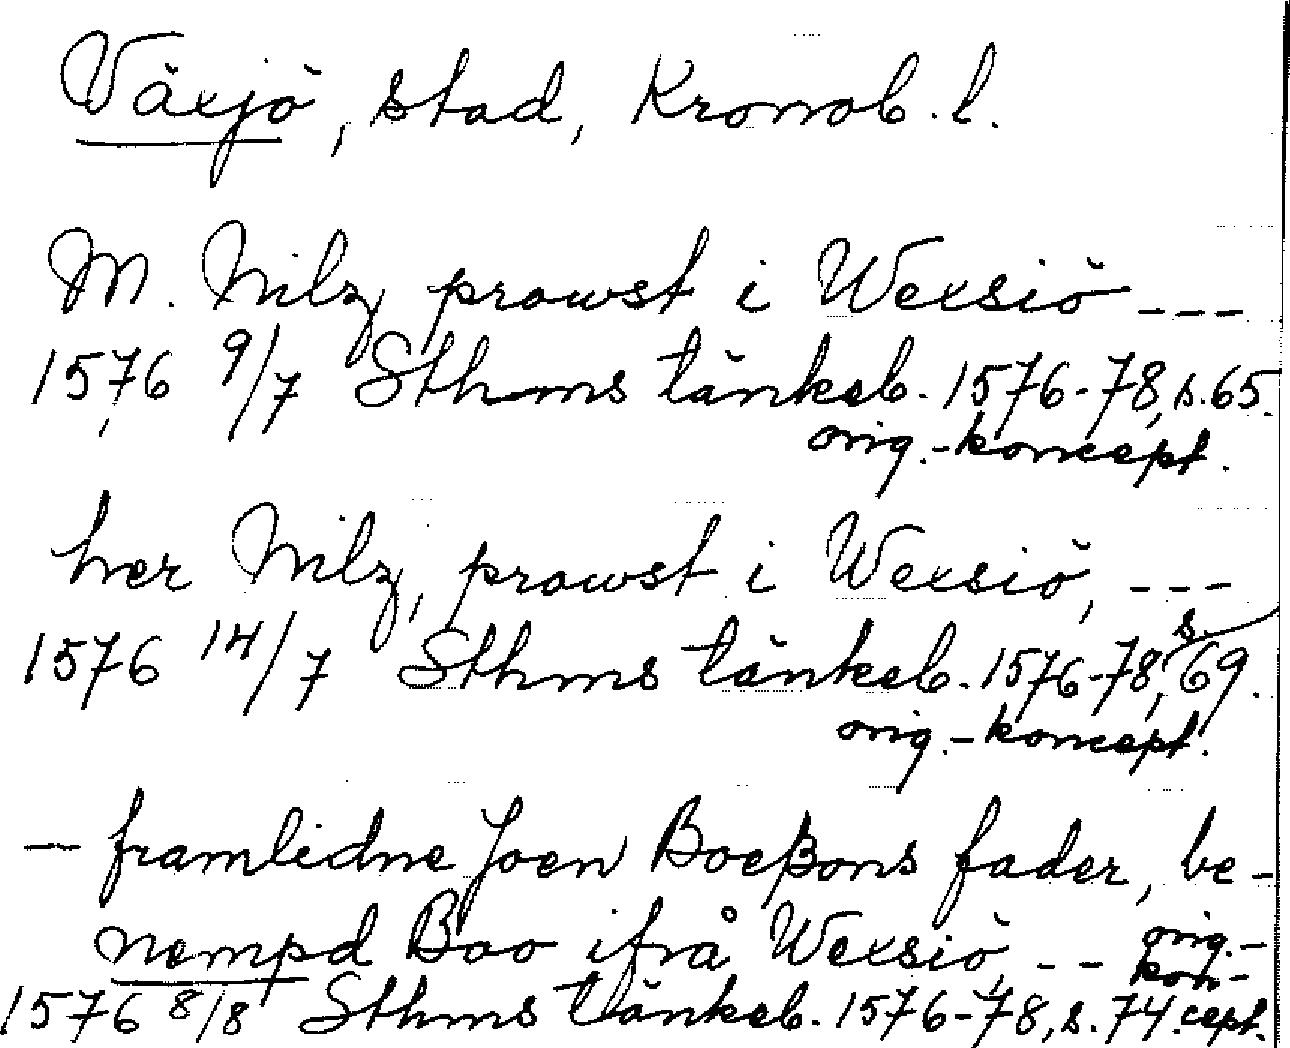 Växjö, stad, Kronob. l.
M. Nilz prowst i Wexsiö ---
1576 9/7 Sthms tänkeb. 1576-78, s. 65.
orig.-koncept.
her Nilz, prowst i Wexsiö, ---
1576 14/7 Sthms tänkeb. 1576-78, s. 69.
orig.-koncept.
— framlidne Joen Boeßons fader, be-
nempd Boo ifrå Wexsiö, -- orig.-
kon-
1576 8/8 Sthms tänkeb. 1576-78, s. 74. cept.